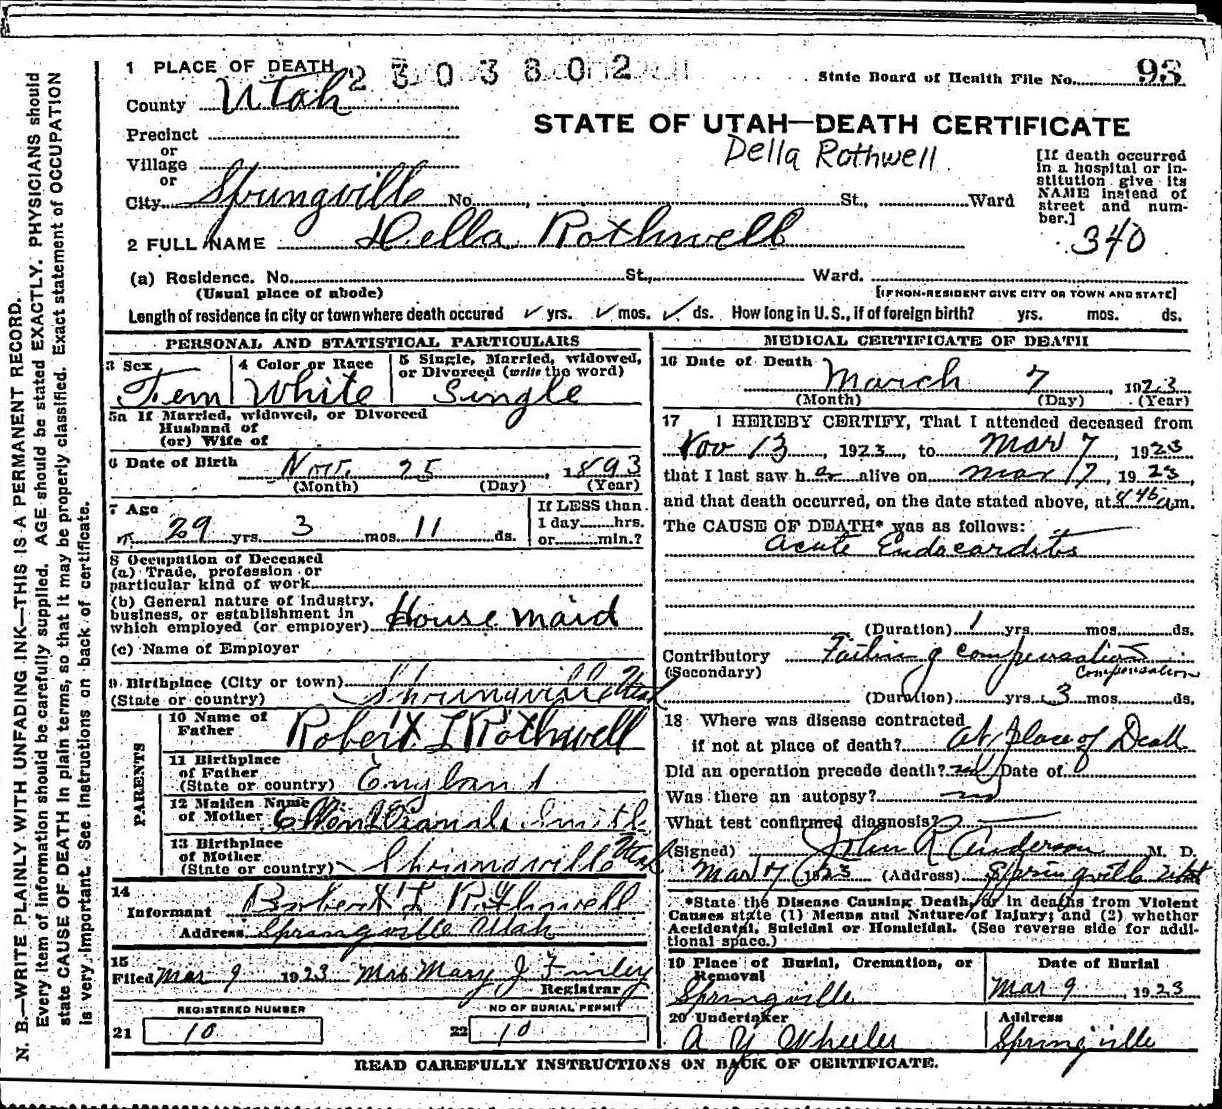 1 PLACE OF DEATH
2303802
State Board of Health File No. 93
County Utah
STATE OF UTAH—DEATH CERTIFICATE
Precinct
Della Rothwell
or
Village
or
City Springville No. St., Ward
[If death occurred in a hospital or in-
stitution give its
NAME instead of
street and num-
ber.]
340
2 FULL NAME Della Rothwell
(a) Residence. No. St., Ward.
(Usual place of abode)
[IF NON-RESIDENT GIVE CITY OR TOWN AND STATE]
Length of residence in city or town where death occured ✓ yrs. ✓ mos. ✓ ds. How long in U. S., if of foreign birth? yrs. mos. ds.
PERSONAL AND STATISTICAL PARTICULARS
3 Sex
Fem
4 Color or Race
White
5 Single, Married, widowed,
or Divorced (write the word)
Single
5a If Married, widowed, or Divorced
Husband of
(or) Wife of
6 Date of Birth Nov. 25, 1893
(Month) (Day) (Year)
7 Age
29 yrs. 3 mos. 11 ds.
If LESS than
1 day hrs.
or min.?
8 Occupation of Deceased
(a) Trade, profession or
particular kind of work
(b) General nature of industry,
business, or establishment in
which employed (or employer) House maid
(c) Name of Employer
9 Birthplace (City or town) Springville Utah
(State or country)
PARENTS
10 Name of
Father Robert L Rothwell
11 Birthplace
of Father
(State or country) England
12 Maiden Name
of Mother Smith
13 Birthplace
of Mother
(State or country) Springville Utah
14
Informant Robert L Rothwell
Address Springville Utah
15
Filed Mar 9 1923 Mrs Mary J Finley
Registrar
REGISTERED NUMBER
21 10
NO OF BURIAL PERMIT
22 10
MEDICAL CERTIFICATE OF DEATH
16 Date of Death
March 7 1923
(Month) (Day) (Year)
17 I HEREBY CERTIFY, That I attended deceased from
Nov 13, 1923, to Mar 7, 1923
that I last saw her alive on Mar 7, 1923,
and that death occurred, on the date stated above, at 8 46 a.m.
The CAUSE OF DEATH* was as follows:
Acute Endocarditis
(Duration) 1 yrs. mos. ds.
Contributory Failing compensation
(Secondary) Compensation
(Duration) yrs. 3 mos. ds.
18 Where was disease contracted
if not at place of death? At place of Death
Did an operation precede death? no Date of
Was there an autopsy? no
What test confirmed diagnosis?
(Signed) John R Anderson M. D.
Mar 7 1923 (Address) Springville Utah
*State the Disease Causing Death, or in deaths from Violent
Causes state (1) Means and Nature of Injury; and (2) whether
Accidental, Suicidal or Homicidal. (See reverse side for addi-
tional space.)
19 Place of Burial, Cremation, or
Removal
Springville
Date of Burial
Mar 9, 1923
20 Undertaker
A Y Wheeler
Address
Springville
READ CAREFULLY INSTRUCTIONS ON BACK OF CERTIFICATE.
N. B.—WRITE PLAINLY WITH UNFADING INK—THIS IS A PERMANENT RECORD.
Every item of information should be carefully supplied. AGE should be stated EXACTLY. PHYSICIANS should
state CAUSE OF DEATH in plain terms, so that it may be properly classified. Exact statement of OCCUPATION
is very important. See instructions on back of certificate.